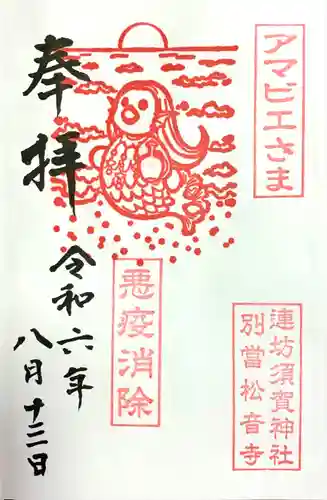 アマビエさま
奉拝
悪疫消除
令和六年
八月十三日
連坊須賀神社
別當松音寺